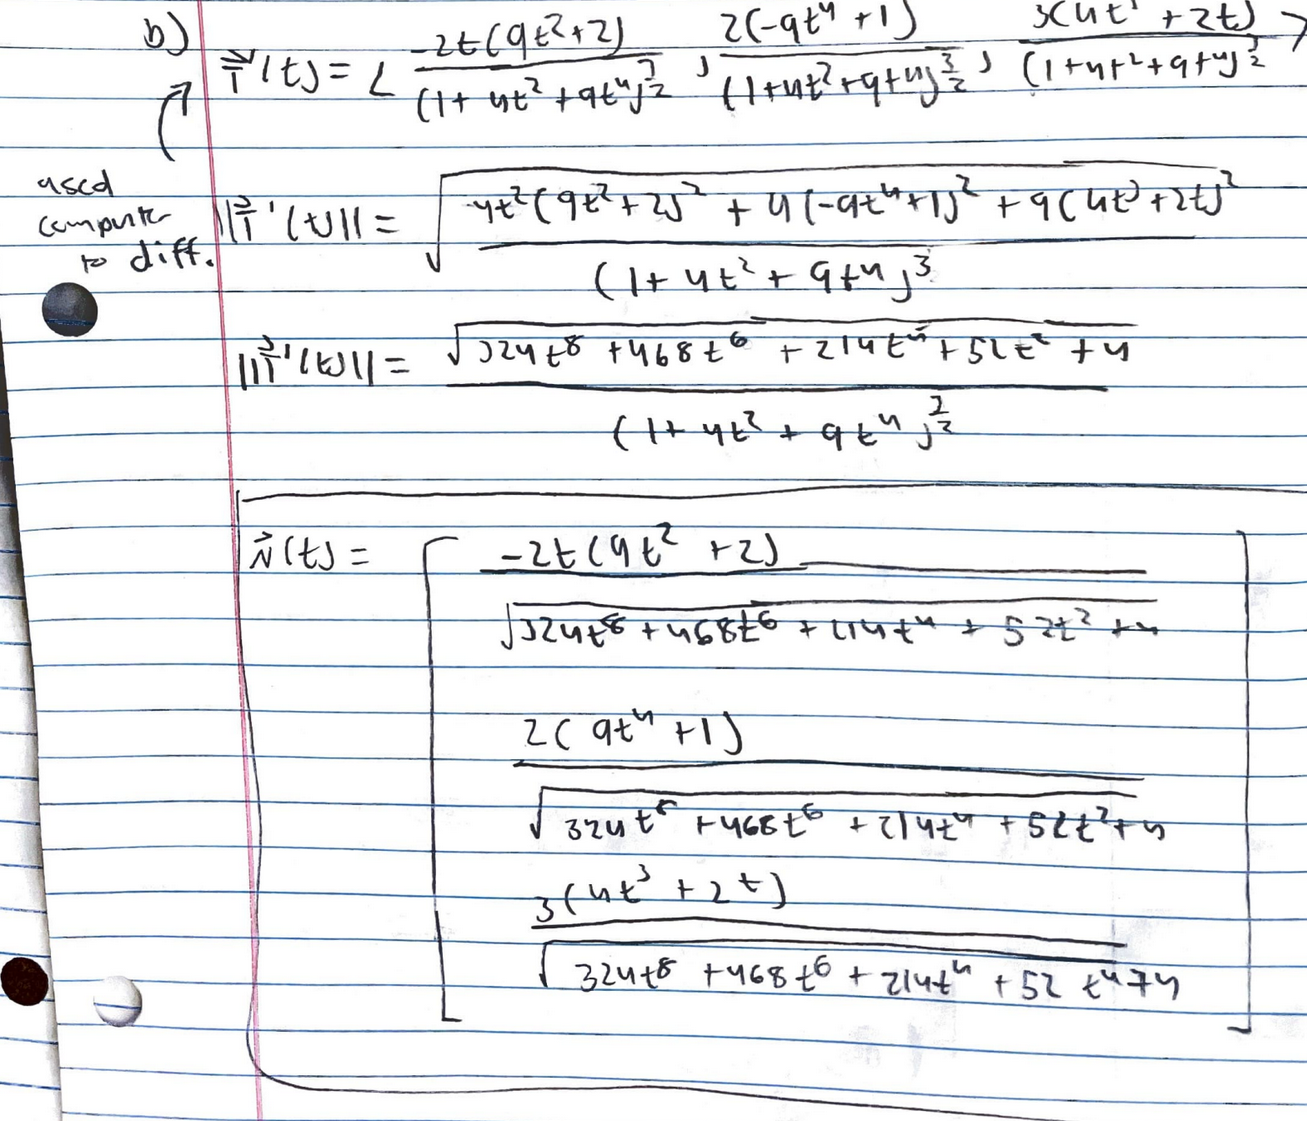 b) T⃗'(t) = < -2t(9t² + 2) / (1 + 4t² + 9t⁴)^(3/2) , 2(-9t⁴ + 1) / (1 + 4t² + 9t⁴)^(3/2) , 3(4t³ + 2t) / (1 + 4t² + 9t⁴)^(3/2) >
used
computer
to diff.
||T⃗'(t)|| = √( (4t²(9t² + 2)² + 4(-9t⁴ + 1)² + 9(4t³ + 2t)²) / (1 + 4t² + 9t⁴)³ )
||T⃗'(t)|| = √(324t⁸ + 468t⁶ + 214t⁴ + 52t² + 4) / (1 + 4t² + 9t⁴)^(3/2)
N⃗(t) = [ -2t(9t² + 2) / √(324t⁸ + 468t⁶ + 214t⁴ + 52t² + 4)
2(9t⁴ + 1) / √(324t⁸ + 468t⁶ + 214t⁴ + 52t² + 4)
3(4t³ + 2t) / √(324t⁸ + 468t⁶ + 214t⁴ + 52t⁴ + 4) ]